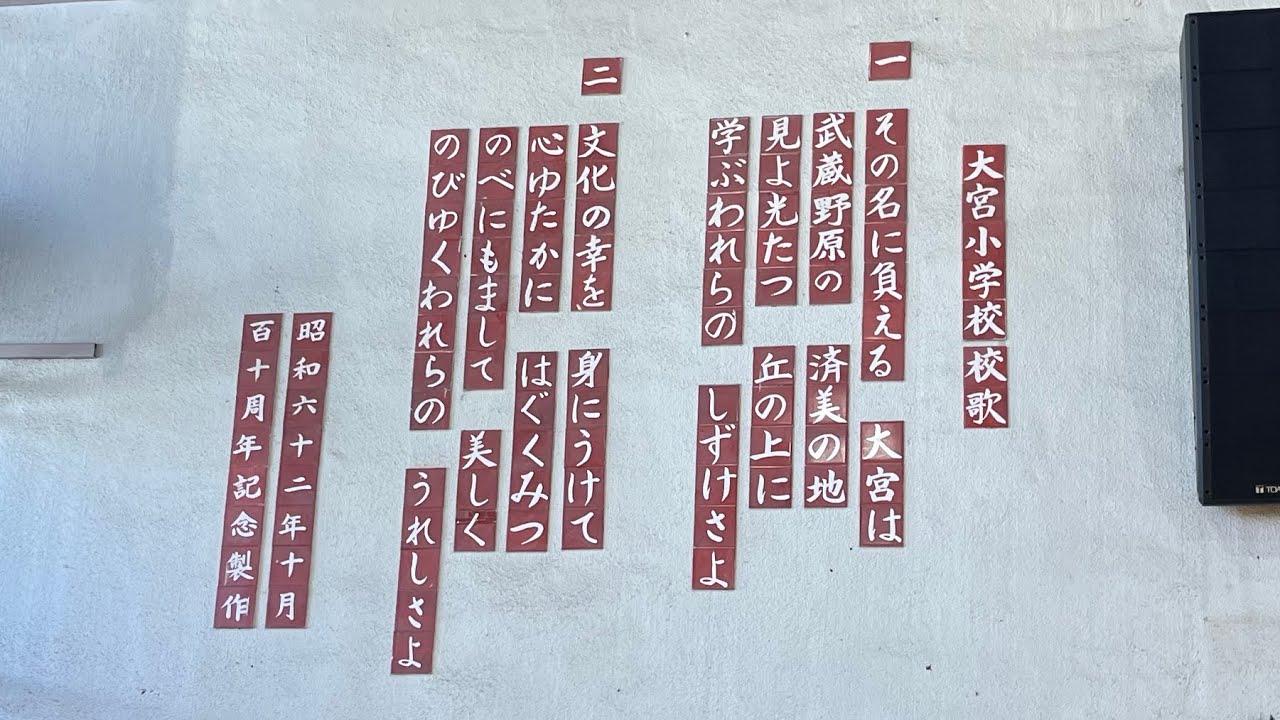 大宮小学校 校歌
一
その名に負える 大宮は
武蔵野原の 済美の地
見よ光たつ 丘の上に
学ぶわれらの しずけさよ
二
文化の幸を 身にうけて
心ゆたかに はぐくみつ
のべにもまして 美しく
のびゆくわれらの うれしさよ
昭和六十二年十月
百十周年記念製作
TOA